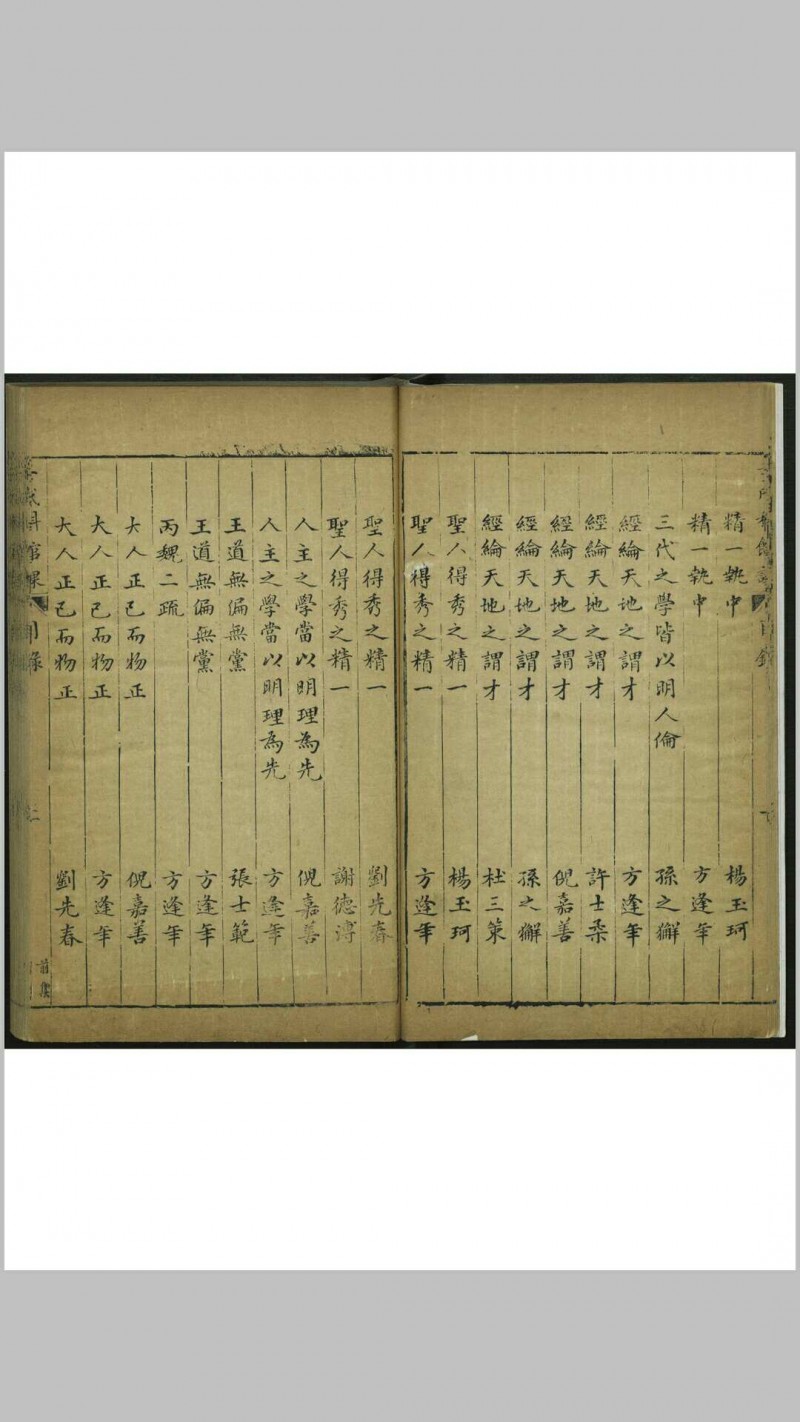 精一執中 楊玉珂
精一執中 方逢年
三代之學皆以明人倫 孫之獬
經綸天地之謂才 方逢年
經綸天地之謂才 許士柔
經綸天地之謂才 倪嘉善
經綸天地之謂才 孫之獬
經綸天地之謂才 杜三策
聖人得秀之精一 楊玉珂
聖人得秀之精一 方逢年
聖人得秀之精一 劉先春
聖人得秀之精一 謝德溥
人主之學當以明理為先 倪嘉善
人主之學當以明理為先 方逢年
王道無偏無黨 張士範
王道無偏無黨 方逢年
丙魏二疏 方逢年
大人正己而物正 倪嘉善
大人正己而物正 方逢年
大人正己而物正 劉先春
館課 目錄 二